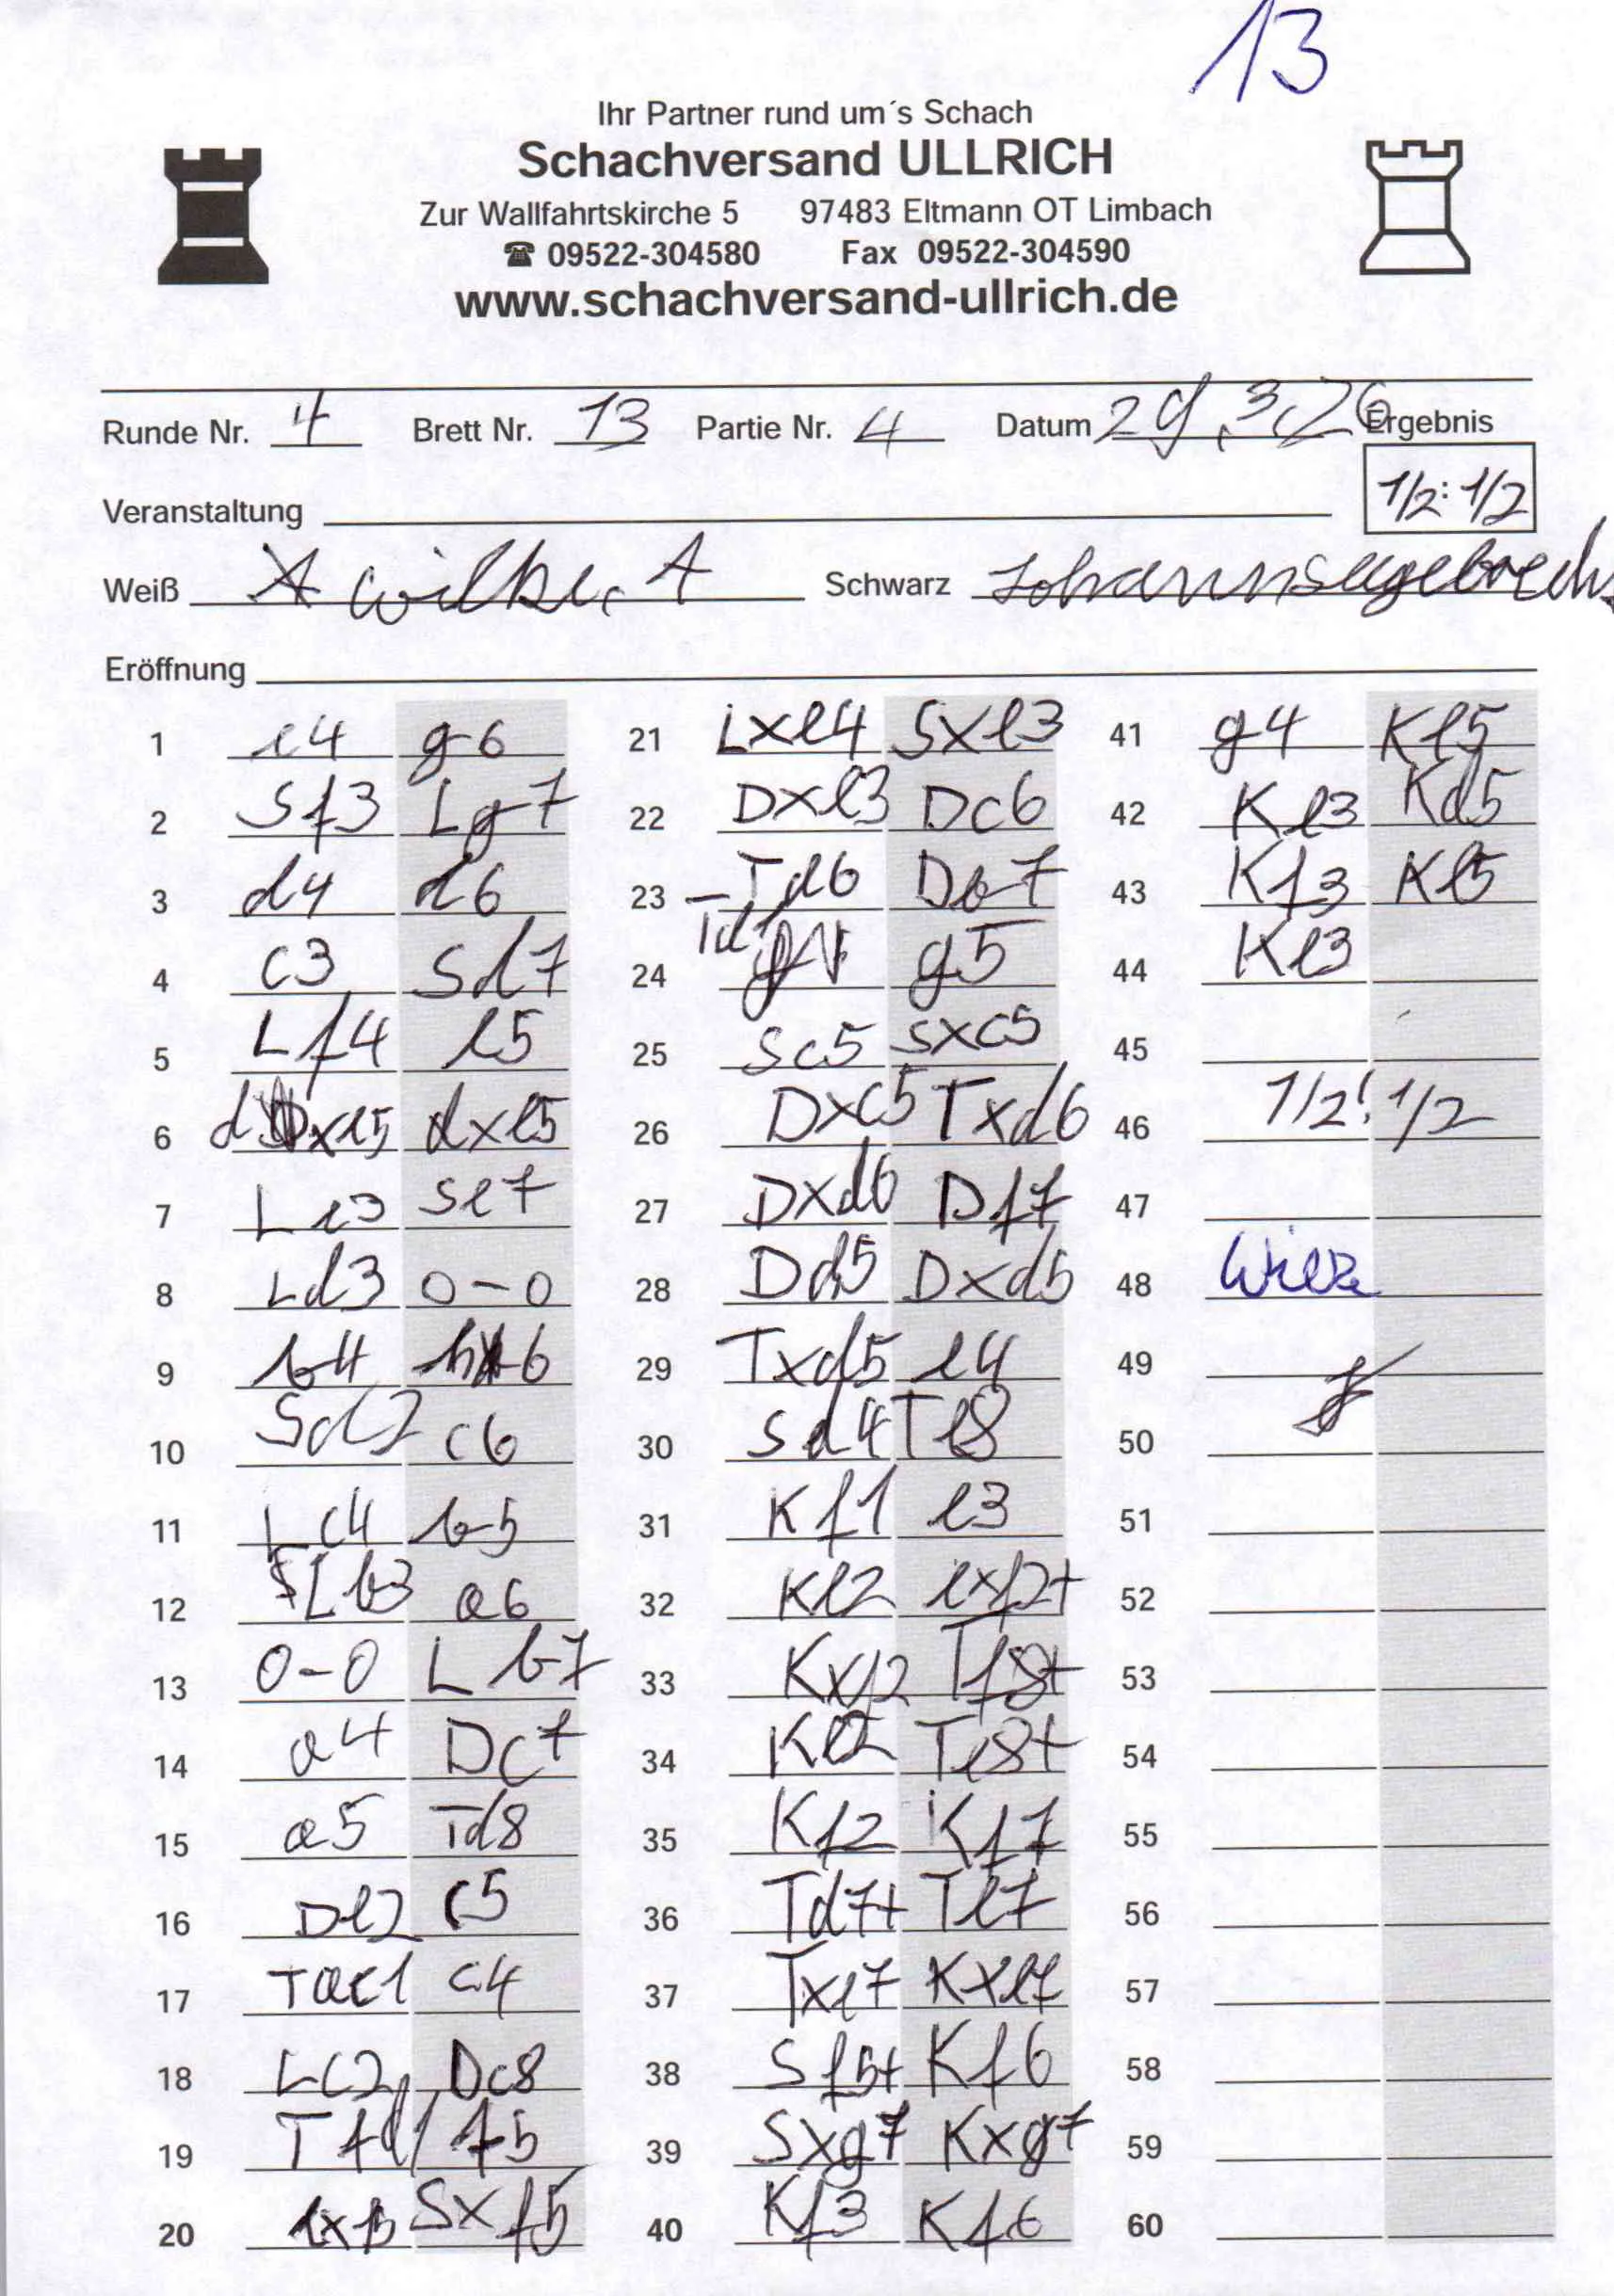 13
Ihr Partner rund um´s Schach
Schachversand ULLRICH
Zur Wallfahrtskirche 5 97483 Eltmann OT Limbach
☎ 09522-304580 Fax 09522-304590
www.schachversand-ullrich.de
Runde Nr. 4 Brett Nr. 13 Partie Nr. 4 Datum 29.3.26 Ergebnis
1/2:1/2
Veranstaltung
Weiß Wilke, A Schwarz
Eröffnung
1 e4 g6 21 Lxe4 Sxe3 41 g4 Ke5
2 Sf3 Lg7 22 Dxe3 Dc6 42 Ke3 Kd5
3 d4 d6 23 Td6 Db7 43 Kf3 Ke5
4 c3 Sd7 24 Td1 g5 44 Ke3
5 Lf4 e5 25 Sc5 Sxc5 45
6 dxe5 dxe5 26 Dxc5 Txd6 46 1/2:1/2
7 Le3 Se7 27 Dxd6 Df7 47
8 Ld3 0-0 28 Dd5 Dxd5 48
9 b4 h6 29 Txd5 e4 49
10 Sd2 c6 30 Sd4 Te8 50
11 Lc4 b5 31 Kf1 e3 51
12 Lb3 a6 32 Ke2 exf2+ 52
13 0-0 Lb7 33 Kxf2 Tf8+ 53
14 a4 Dc7 34 Ke2 Te8+ 54
15 a5 Td8 35 Kf2 Kf7 55
16 De2 c5 36 Td7+ Te7 56
17 Tac1 c4 37 Txe7 Kxe7 57
18 Lc2 Dc8 38 Sf5+ Kf6 58
19 Tfd1 f5 39 Sxg7 Kxg7 59
20 exf5 Sxf5 40 Kf3 Kf6 60